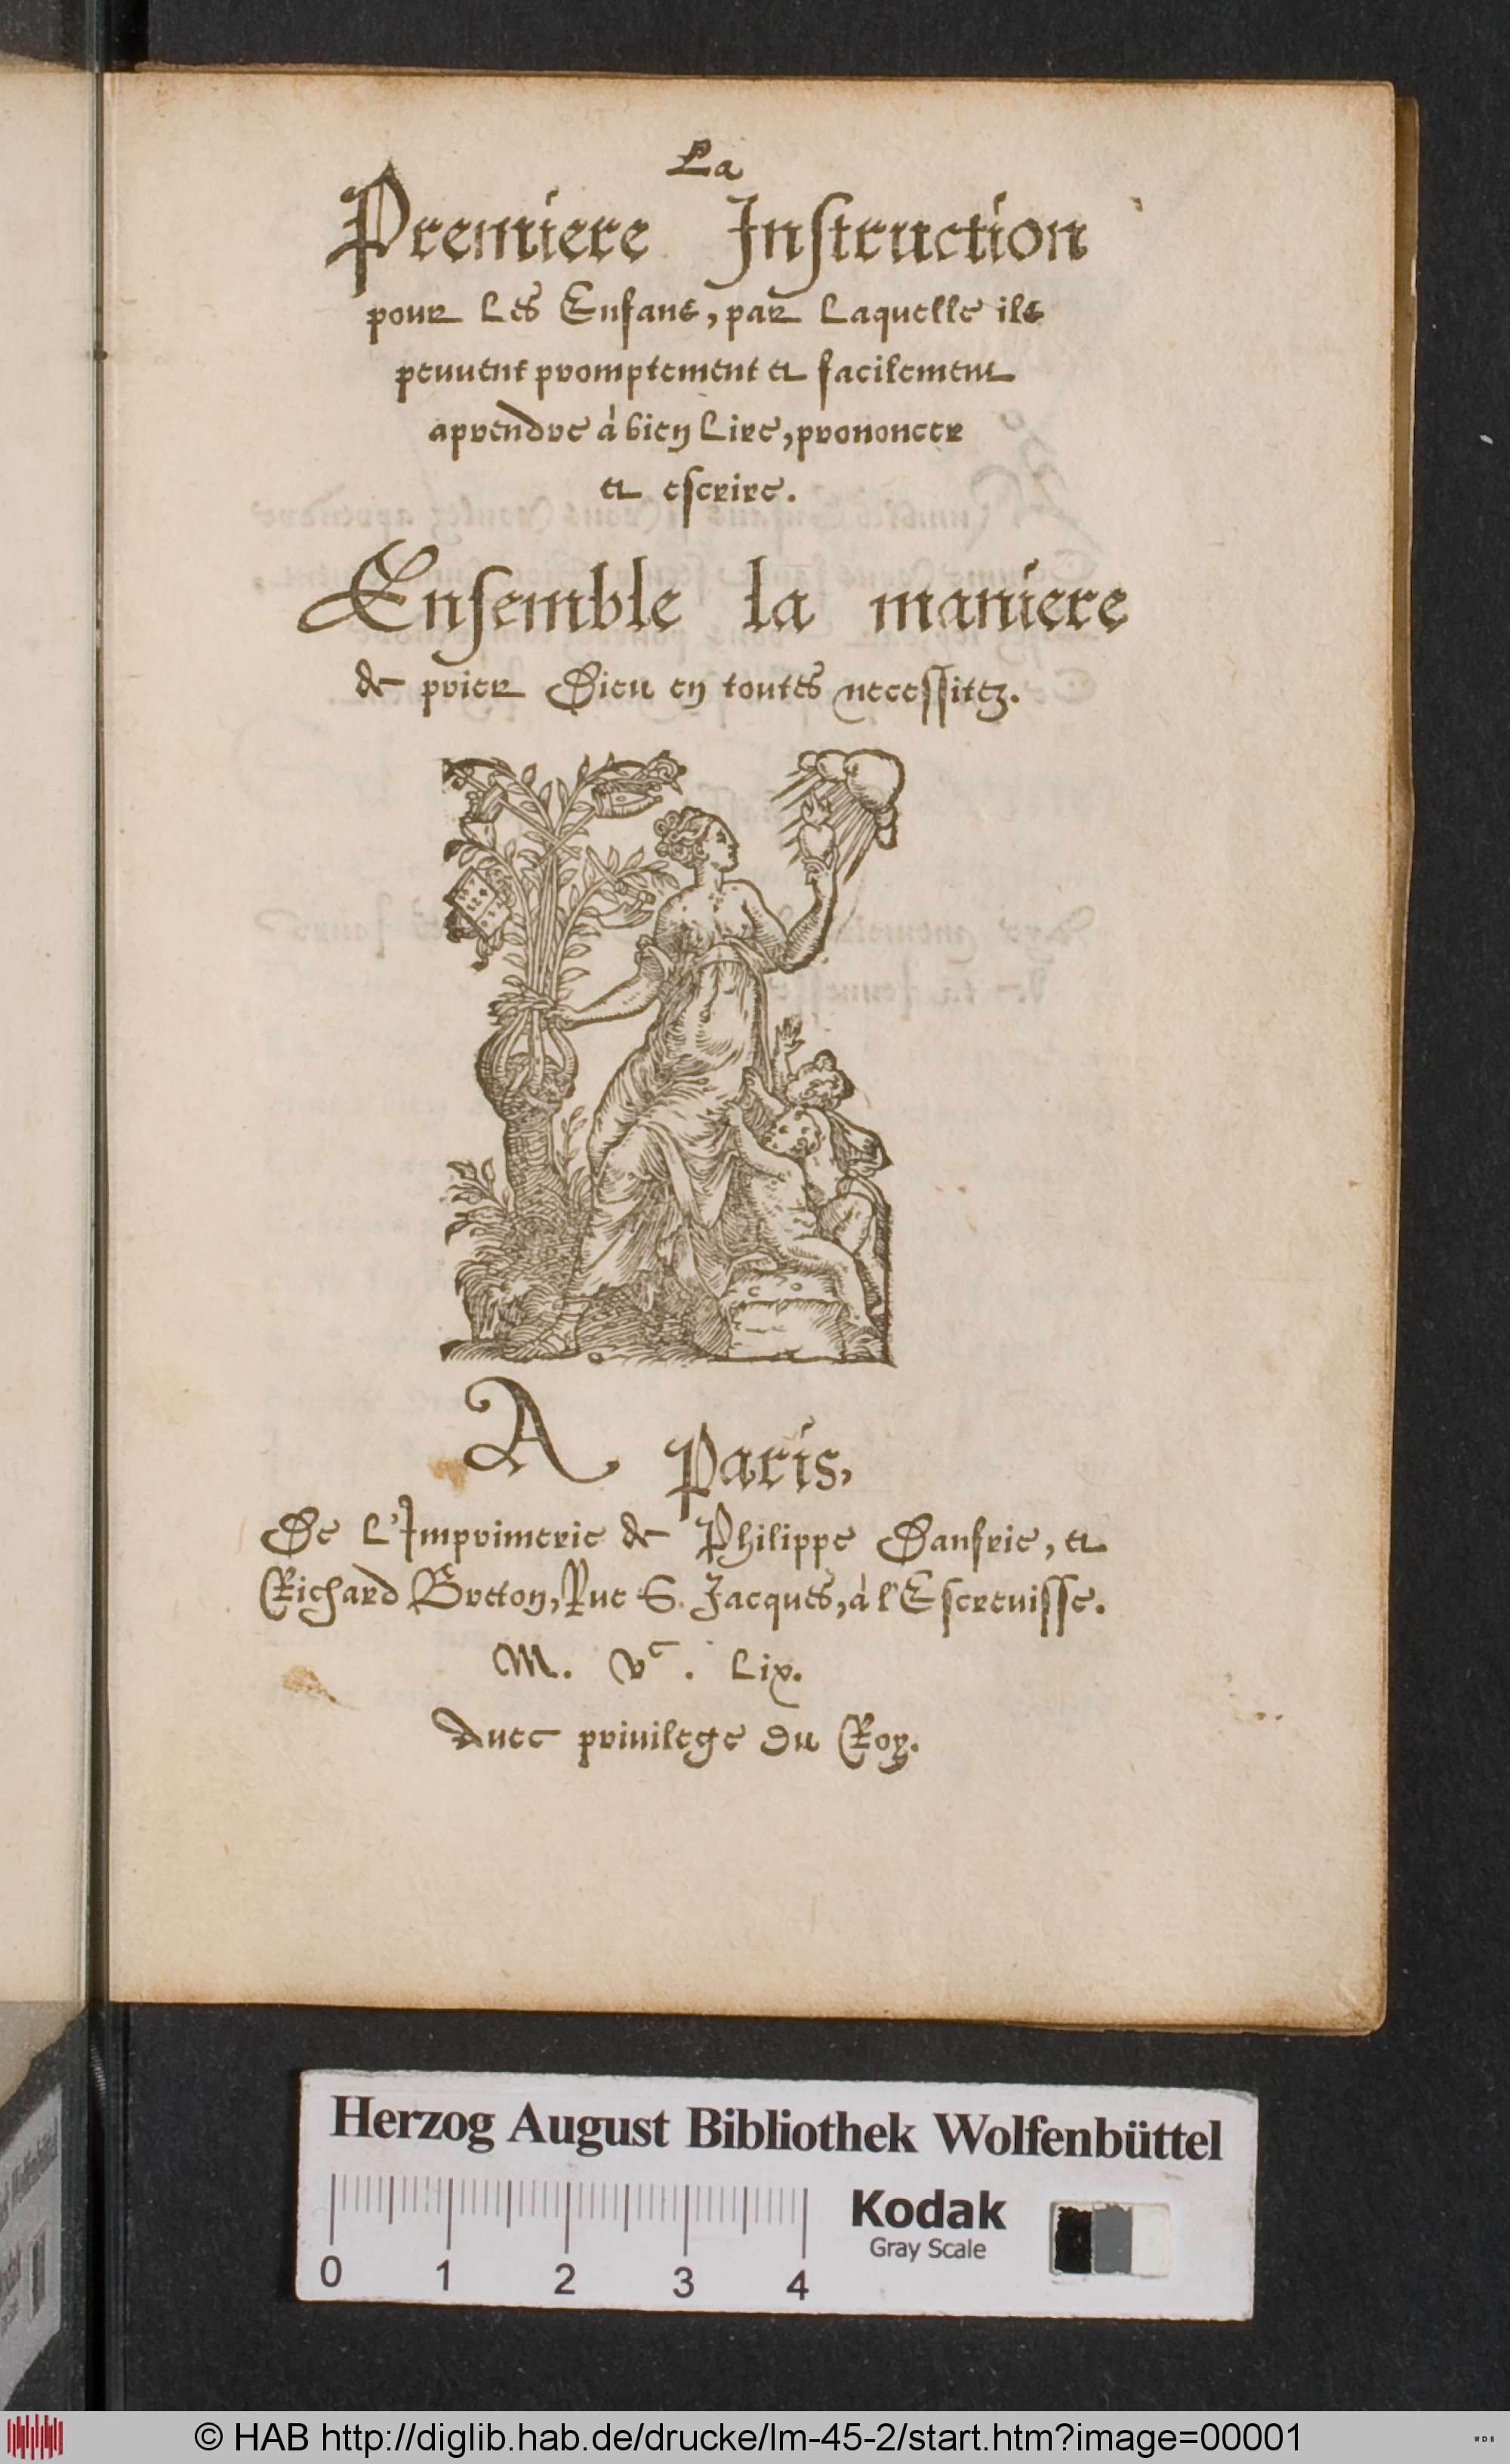 La
Premiere Instruction
pour les Enfans, par laquelle ils
peuuent promptement et facilement
aprendre à bien lire, prononcer
et escrire.
Ensemble la maniere
de prier Dieu en toutes necessitez.
A Paris,
De l'Imprimerie de Philippe Danfrie, et
Richard Breton, Rue S. Jacques, à l'Escreuisse.
M. vᶜ. lix.
Auec priuilege du Roy.
Herzog August Bibliothek Wolfenbüttel
Kodak
Gray Scale
0 1 2 3 4
© HAB http://diglib.hab.de/drucke/lm-45-2/start.htm?image=00001